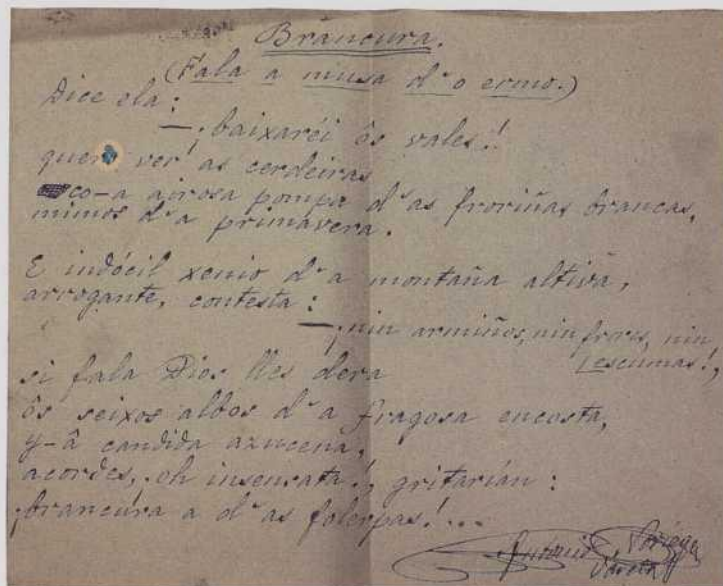 Brancura.
(Fala a musa d'o ermo.)
Dice ela:
—¡baixaréi ôs vales!
quero ver as cerdeiras
co-a airosa pompa d'as froriñas brancas,
mimos d'a primavera.
E indócil xenio d'a montaña altiva,
arrogante, contesta:
—¡nin armiños, nin frores, nin
escumas!,
si fala Dios lles dera
ôs seixos albos d'a fragosa encosta,
y-â candida azucena,
acordes, ¡oh insensata!, gritarían:
¡brancura a d'as folerpas!...
Antonio Noriega
Varela